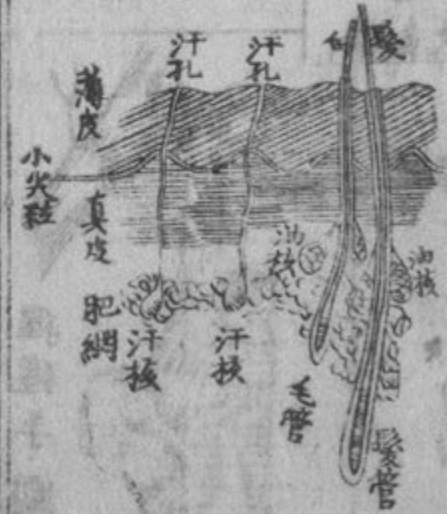 髮
汗孔
汗孔
薄皮
小尖粒
真皮
油核
油核
肥網
汗核
汗核
毛管
髮管